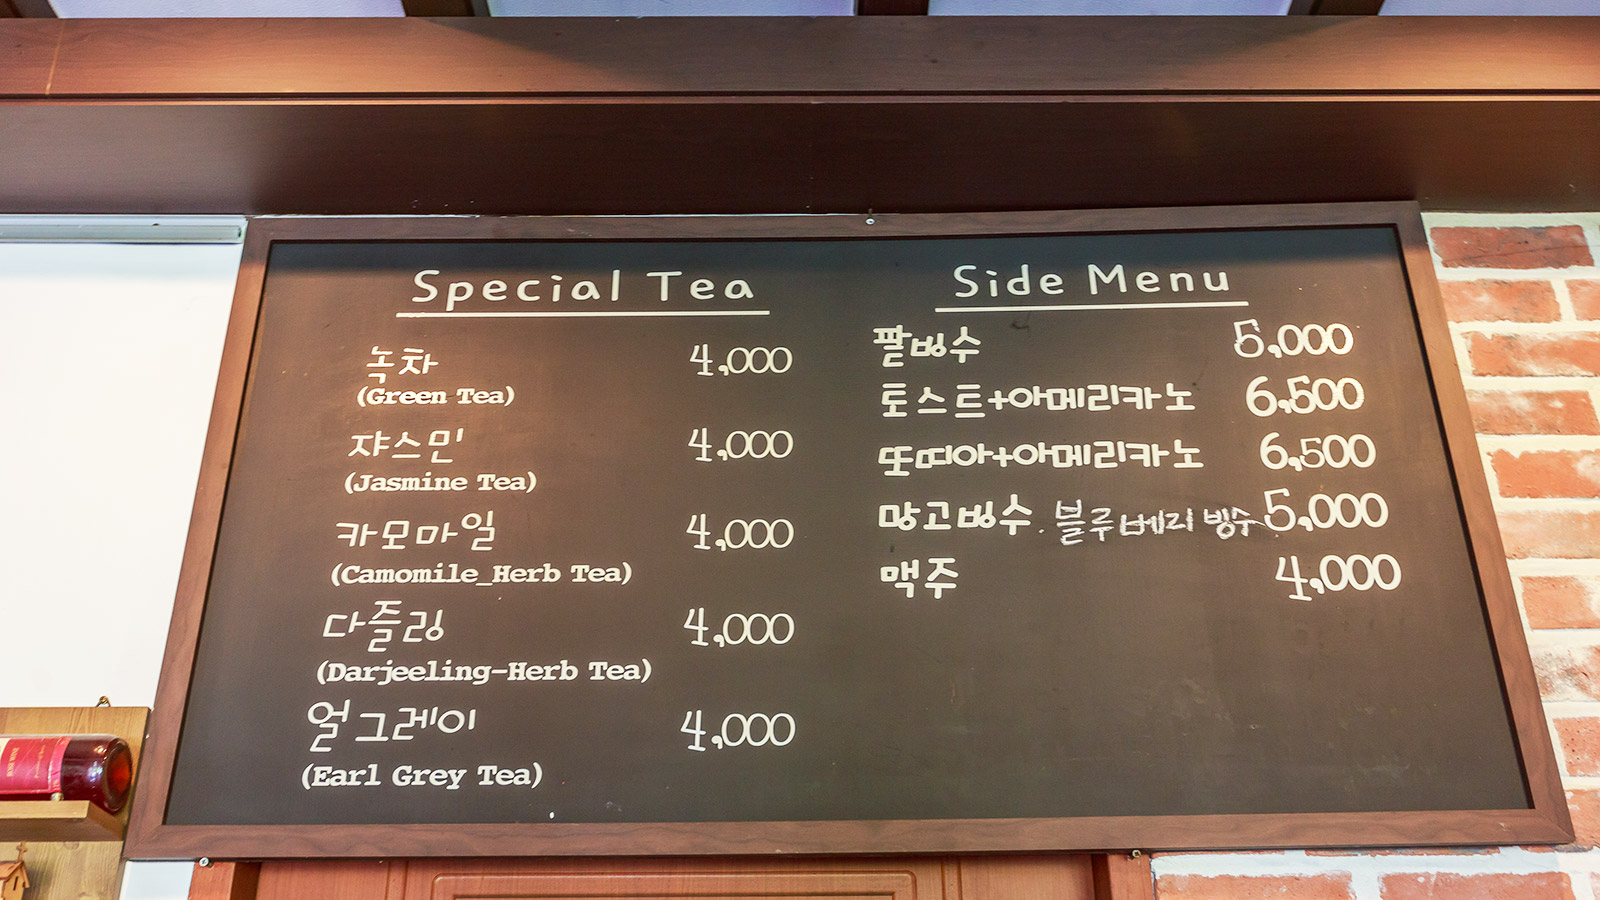 Special Tea
녹차 4,000
(Green Tea)
쟈스민 4,000
(Jasmine Tea)
카모마일 4,000
(Camomile_Herb Tea)
다즐링 4,000
(Darjeeling-Herb Tea)
얼그레이 4,000
(Earl Grey Tea)
Side Menu
팥빙수 5,000
토스트+아메리카노 6,500
또띠아+아메리카노 6,500
망고빙수. 블루베리 빙수 5,000
맥주 4,000